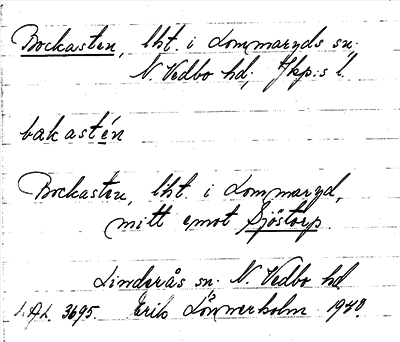 Bockasten, lht. i Lommaryds sn;
N. Vedbo hd; Jkp:s l.
bakastén
Bockasten, lht. i Lommaryd,
mitt emot Sjöstorp.
Linderås sn. N. Vedbo hd
3695. Erik Lönnerholm 1940.